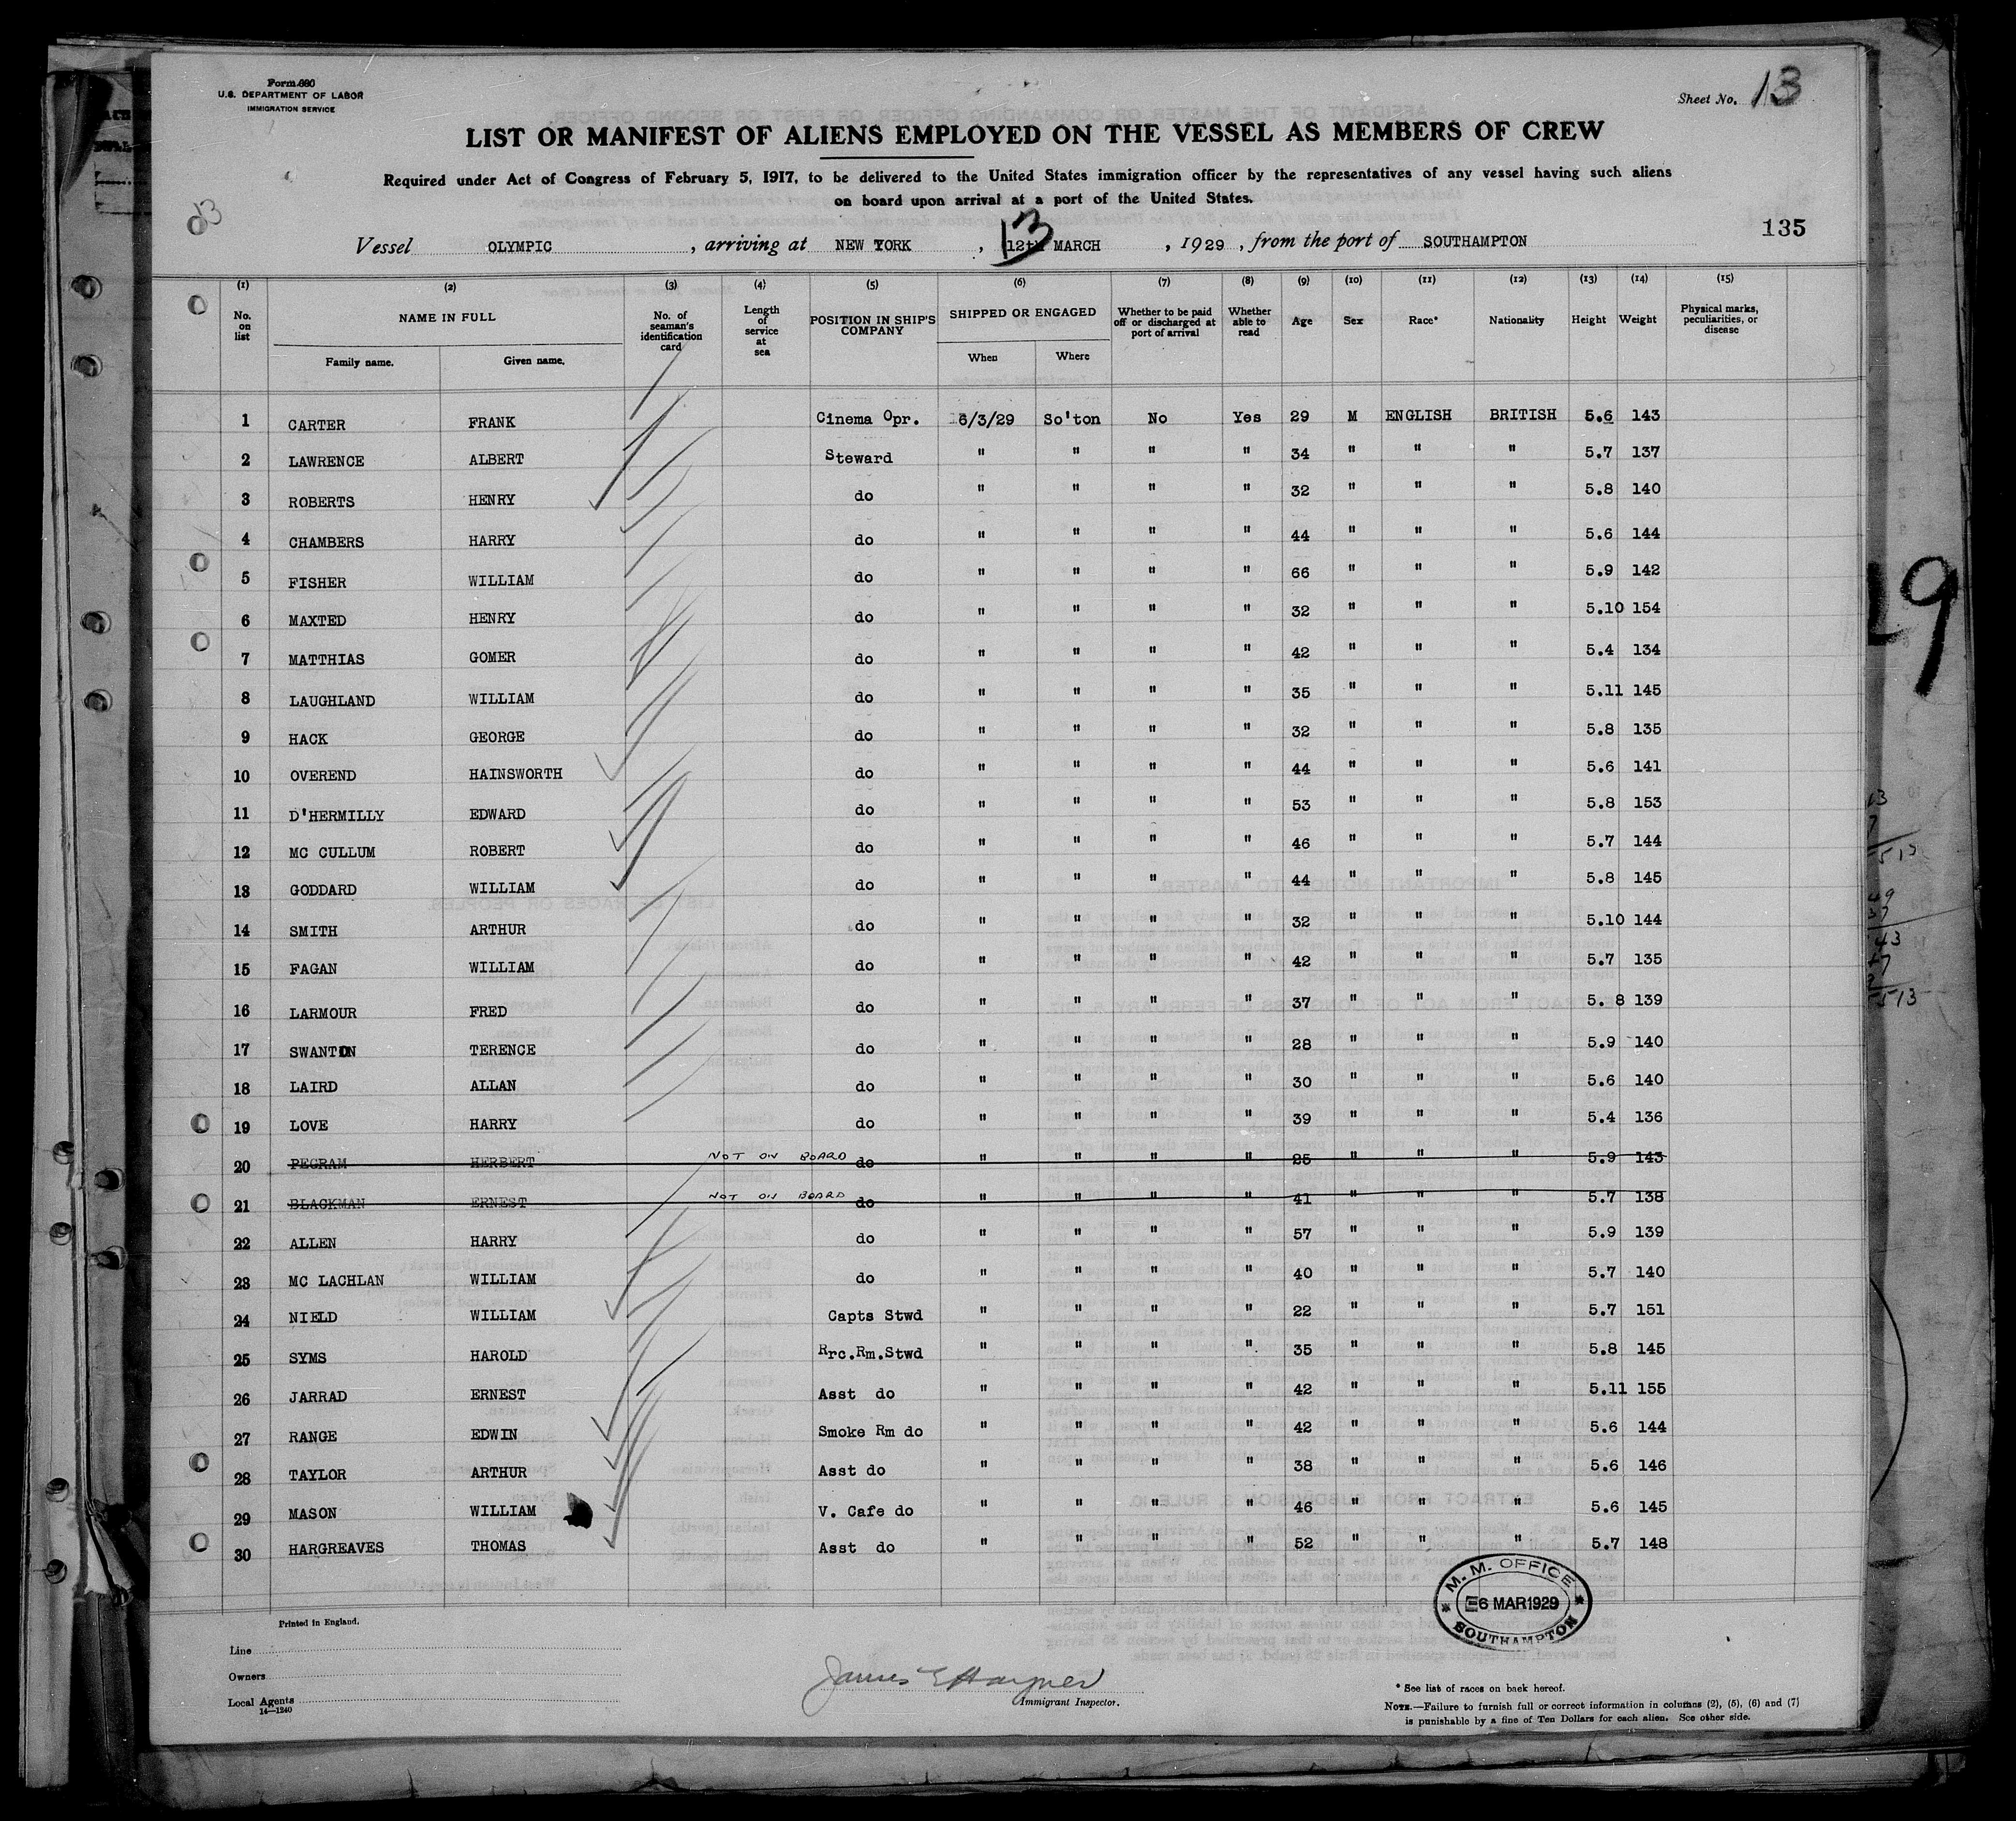 Form 680
U.S. DEPARTMENT OF LABOR
IMMIGRATION SERVICE
Sheet No. 13
LIST OR MANIFEST OF ALIENS EMPLOYED ON THE VESSEL AS MEMBERS OF CREW
Required under Act of Congress of February 5, 1917, to be delivered to the United States immigration officer by the representatives of any vessel having such aliens
on board upon arrival at a port of the United States.
Vessel OLYMPIC , arriving at NEW YORK , 13 12th MARCH , 1929 , from the port of SOUTHAMPTON
135
(1) (2) (3) (4) (5) (6) (7) (8) (9) (10) (11) (12) (13) (14) (15)
No. on list NAME IN FULL Family name. Given name. No. of seaman's identification card Length of service at sea POSITION IN SHIP'S COMPANY SHIPPED OR ENGAGED When Where Whether to be paid off or discharged at port of arrival Whether able to read Age Sex Race* Nationality Height Weight Physical marks, peculiarities, or disease
1 CARTER FRANK Cinema Opr. 6/3/29 So'ton No Yes 29 M ENGLISH BRITISH 5.6 143
2 LAWRENCE ALBERT Steward " " " " 34 " " " 5.7 137
3 ROBERTS HENRY do " " " " 32 " " " 5.8 140
4 CHAMBERS HARRY do " " " " 44 " " " 5.6 144
5 FISHER WILLIAM do " " " " 66 " " " 5.9 142
6 MAXTED HENRY do " " " " 32 " " " 5.10 154
7 MATTHIAS GOMER do " " " " 42 " " " 5.4 134
8 LAUGHLAND WILLIAM do " " " " 35 " " " 5.11 145
9 HACK GEORGE do " " " " 32 " " " 5.8 135
10 OVEREND HAINSWORTH do " " " " 44 " " " 5.6 141
11 D'HERMILLY EDWARD do " " " " 53 " " " 5.8 153
12 MC CULLUM ROBERT do " " " " 46 " " " 5.7 144
13 GODDARD WILLIAM do " " " " 44 " " " 5.8 145
14 SMITH ARTHUR do " " " " 32 " " " 5.10 144
15 FAGAN WILLIAM do " " " " 42 " " " 5.7 135
16 LARMOUR FRED do " " " " 37 " " " 5.8 139
17 SWANTON TERENCE do " " " " 28 " " " 5.9 140
18 LAIRD ALLAN do " " " " 30 " " " 5.6 140
19 LOVE HARRY do " " " " 39 " " " 5.4 136
20 PEGRAM HERBERT NOT ON BOARD do " " " " 25 " " " 5.9 143
21 BLACKMAN ERNEST NOT ON BOARD do " " " " 41 " " " 5.7 138
22 ALLEN HARRY do " " " " 57 " " " 5.9 139
23 MC LACHLAN WILLIAM do " " " " 40 " " " 5.7 140
24 NIELD WILLIAM Capts Stwd " " " " 22 " " " 5.7 151
25 SYMS HAROLD Rrc.Rm.Stwd " " " " 35 " " " 5.8 145
26 JARRAD ERNEST Asst do " " " " 42 " " " 5.11 155
27 RANGE EDWIN Smoke Rm do " " " " 42 " " " 5.6 144
28 TAYLOR ARTHUR Asst do " " " " 38 " " " 5.6 146
29 MASON WILLIAM V. Cafe do " " " " 46 " " " 5.6 145
30 HARGREAVES THOMAS Asst do " " " " 52 " " " 5.7 148
M. M. OFFICE
6 MAR 1929
SOUTHAMPTON
Printed in England.
Line
Owners
Local Agents
14—1240
James
Immigrant Inspector.
* See list of races on back hereof.
NOTE.—Failure to furnish full or correct information in columns (2), (5), (6) and (7)
is punishable by a fine of Ten Dollars for each alien. See other side.